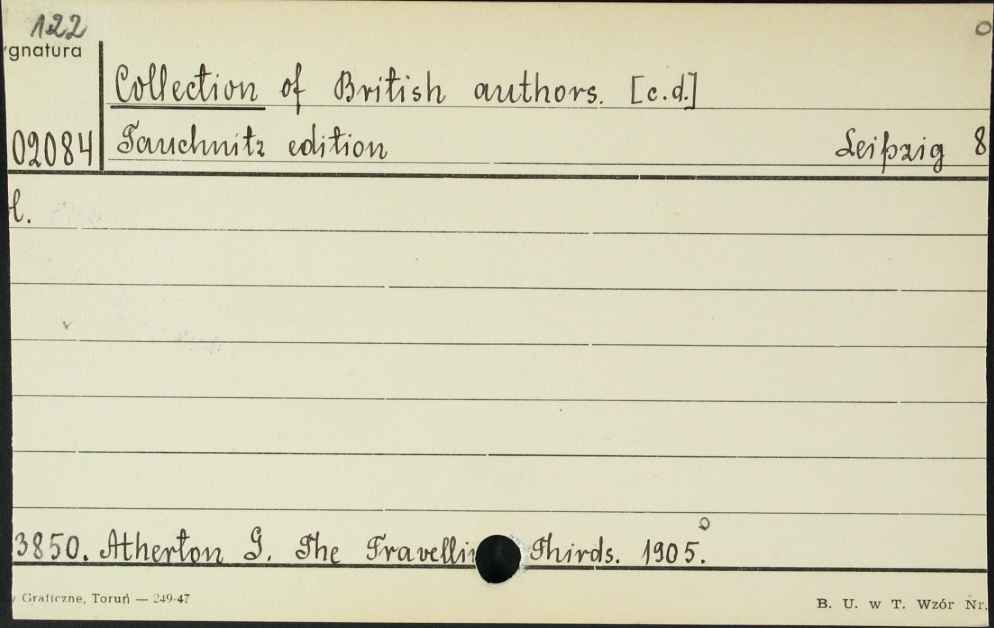 122
ygnatura
Collection of British authors. [c.d.]
02084 Tauchnitz edition Leipzig 8
t.
3850. Atherton G. The Travellin Thirds. 1905.
y Graficzne, Toruń — 249-47
B. U. w T. Wzór Nr.